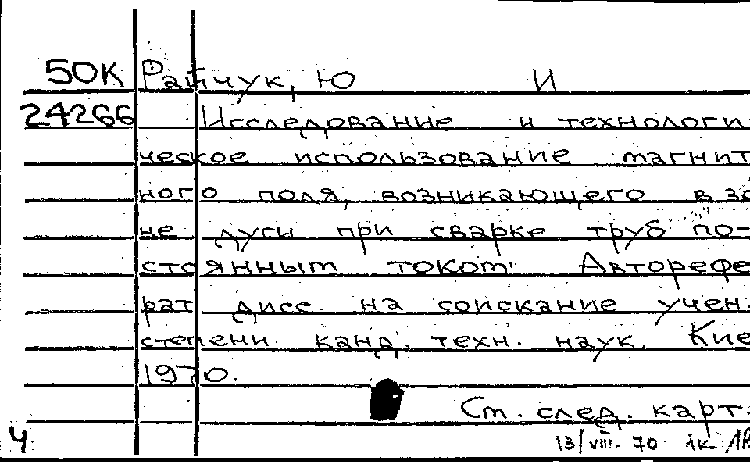 50К Райчук, Ю И
24266 Исследование и технологи-
ческое использование магнит
ного поля, возникающего в зо
не дуги при сварке труб по-
стоянным током. Авторефе
рат дисс. на соискание учен.
степени канд. техн. наук. Кие
1970.
См. след. карт.
Ч 13/VIII. 70